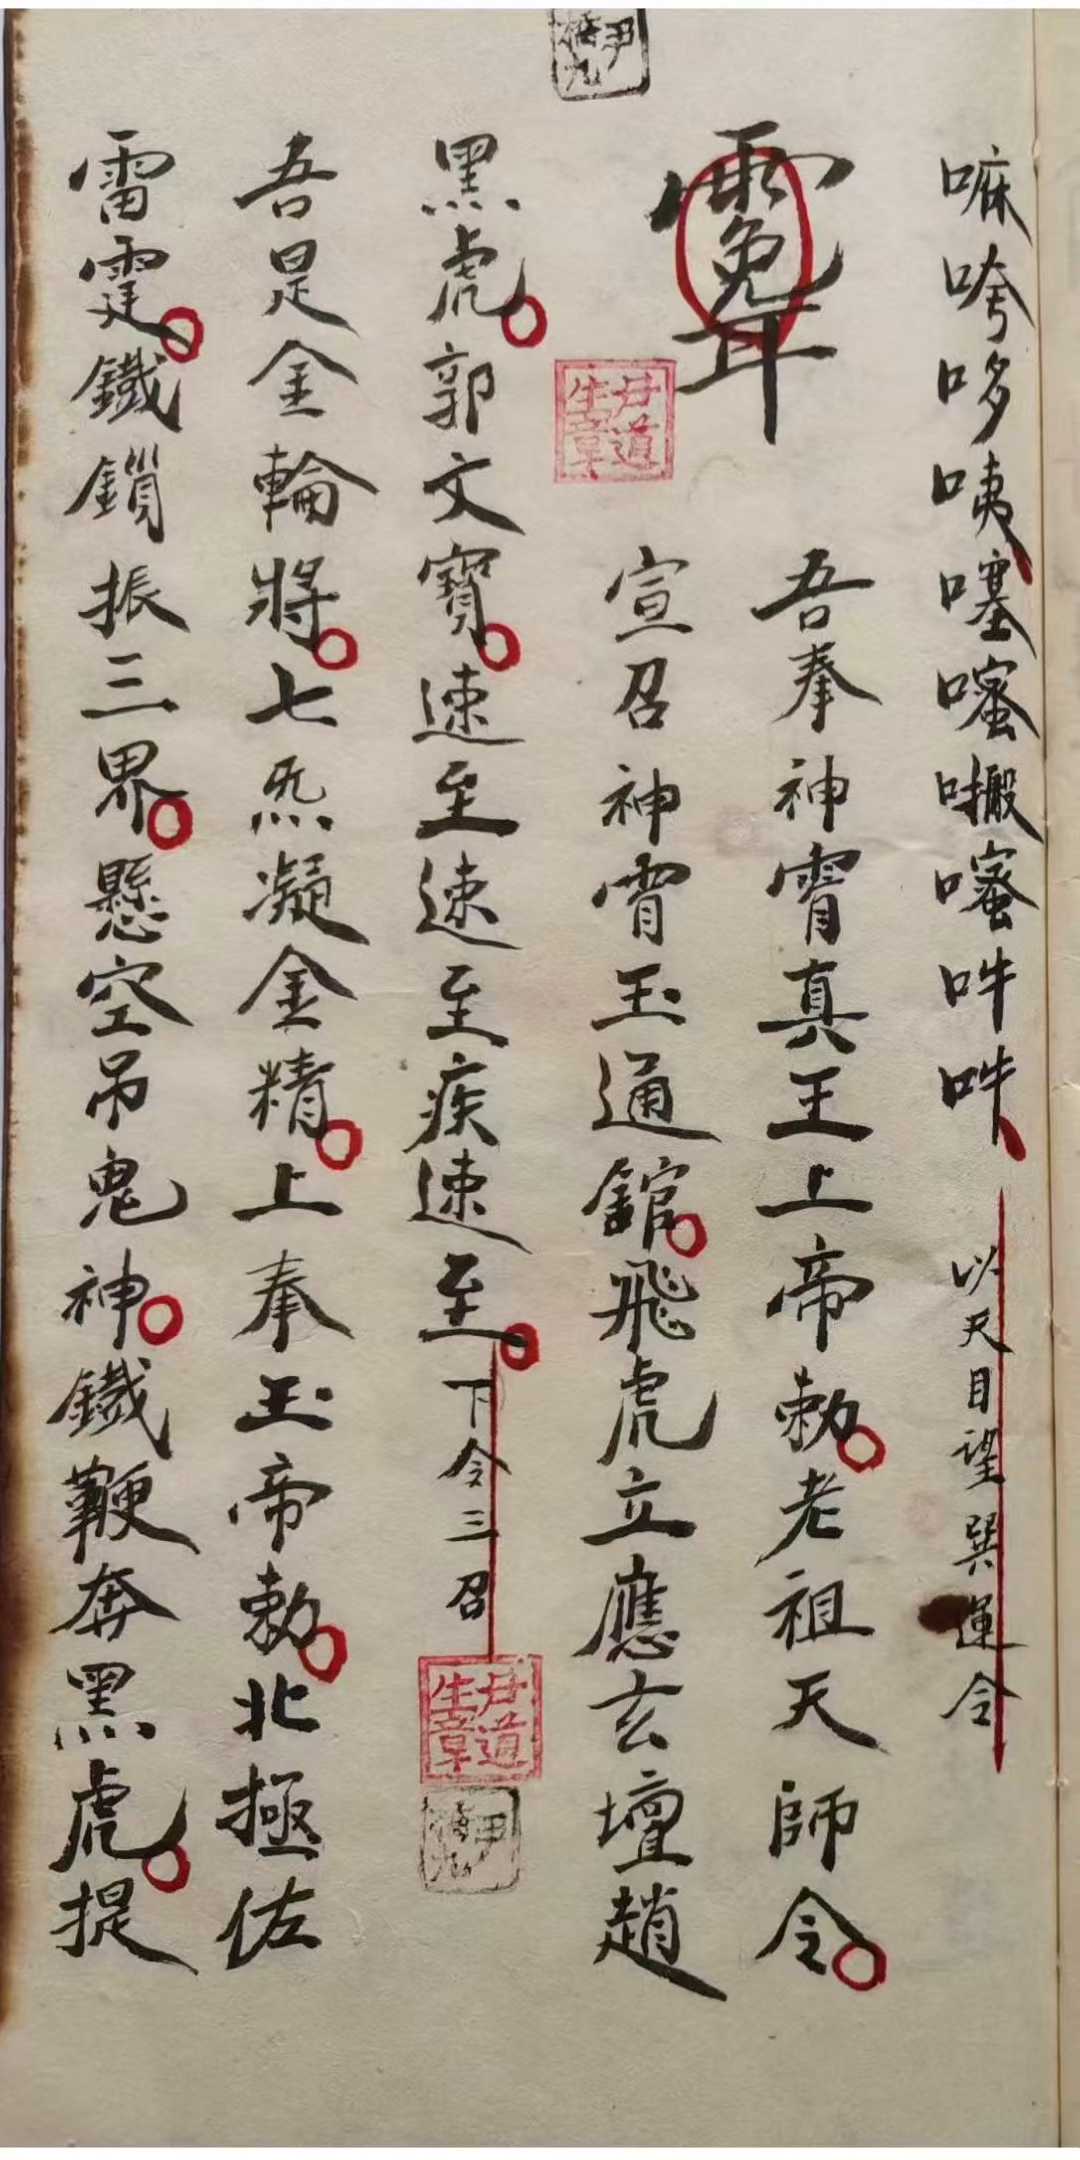 嘛哆咦噻㗫搬㗫吽吽 以天目望巽運令
吾奉神霄真王上帝勅老祖天師令
宣召神霄玉通館飛虎立應玄壇趙
黑虎郭文寶速至速至疾速至 下令三召
吾是金輪將七炁凝金精上奉玉帝勅北極佐
雷霆鐵鎖振三界懸空吊鬼神鐵鞭奔黑虎提